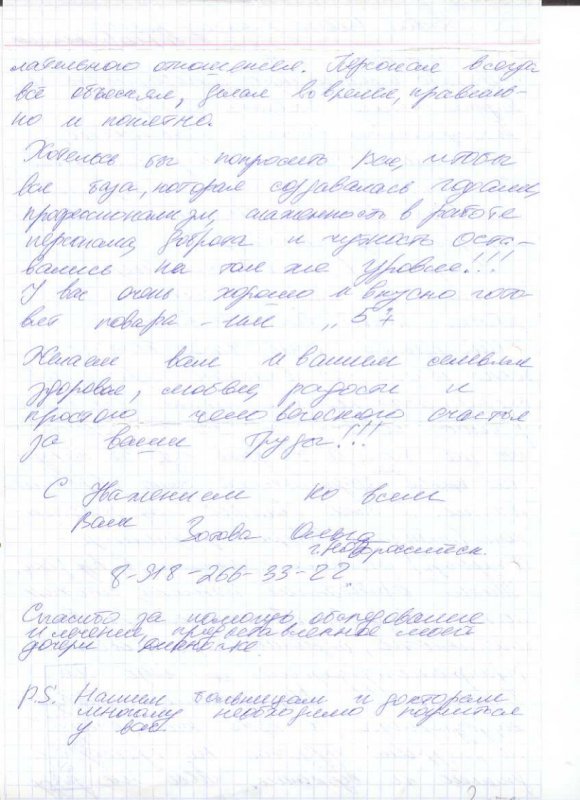 лательного отношения. Персонал всегда
всё объяснял, делал вовремя, правиль-
но и понятно.
Хотелось бы попросить Вас, чтобы
вся база, которая создавалась годами,
профессионализм, слаженность в работе
персонала, доброта и чуткость оста-
вались на том же уровне!!!
У вас очень хорошо и вкусно гото
вят повара - им „5+
Желаем вам и вашим семьям
здоровья, любви, радости и
простого человеческого счастья
за ваши труды!!!
С Уважением ко всем
Вам
Зотова Ольга
г. Новороссийск.
8-918-266-33-22.
Спасибо за помощь, обследование
и лечение, предоставленное моей
дочери
P.S. Нашим больницам и докторам
многому необходимо поучиться
у вас.